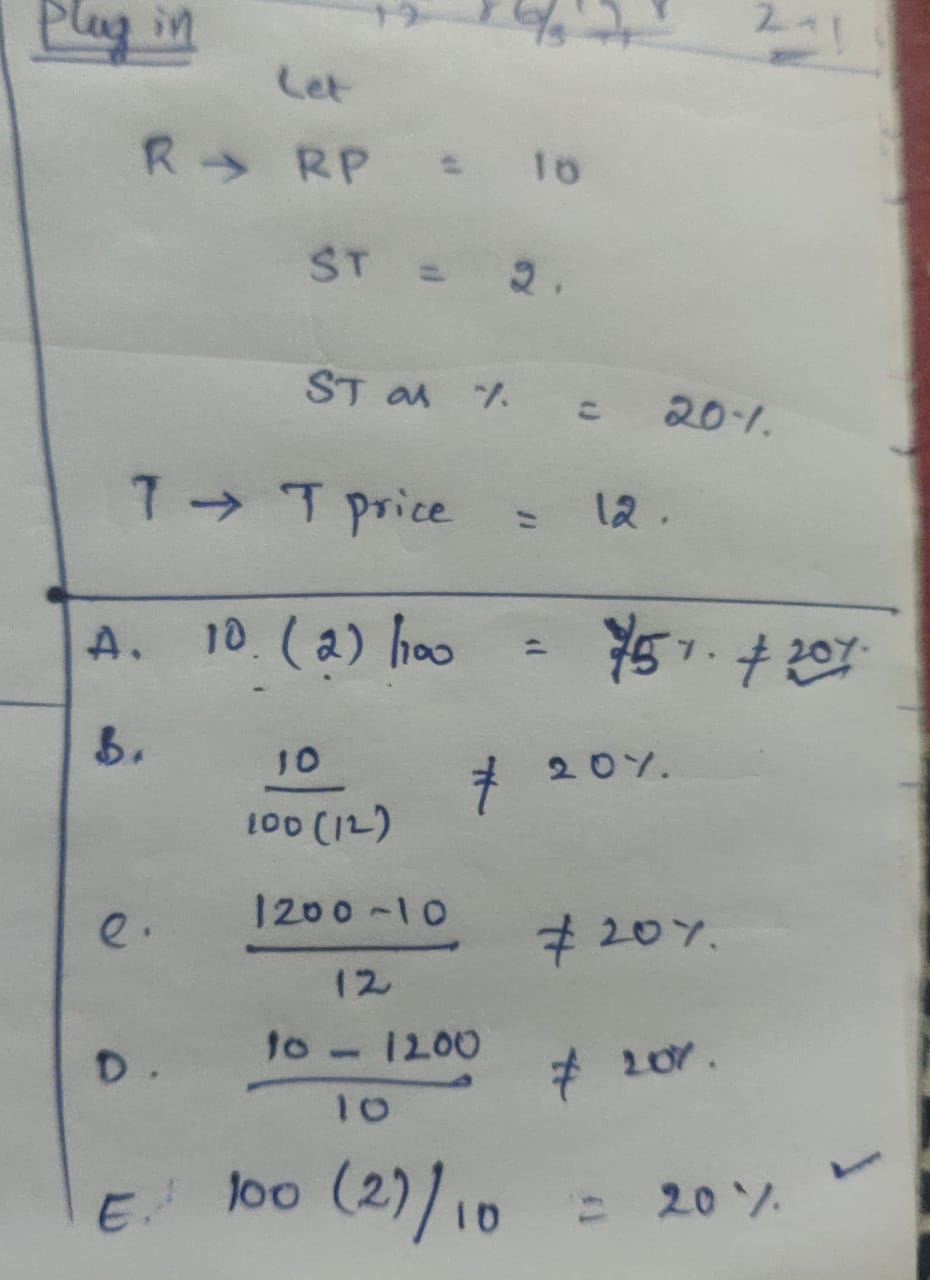 Plug in
2-1
Let
R → RP = 10
ST = 2.
ST as % = 20%.
T → T price = 12.
A. 10.(2)/100 = 5%. ≠ 20%.
B. 10/100(12) ≠ 20%.
C. 1200-10/12 ≠ 20%.
D. 10-1200/10 ≠ 20%.
E. 100(2)/10 = 20%. ✓